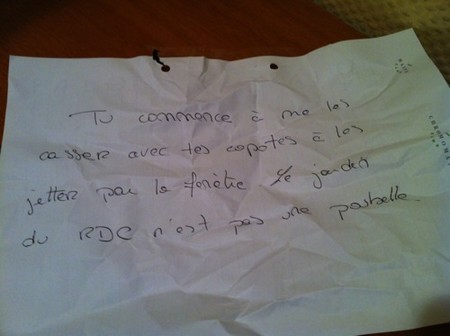 Tu commence à me les
casser avec tes capotes à les
jetter par la fenêtre le jardin
du RDC n'est pas une poubelle.